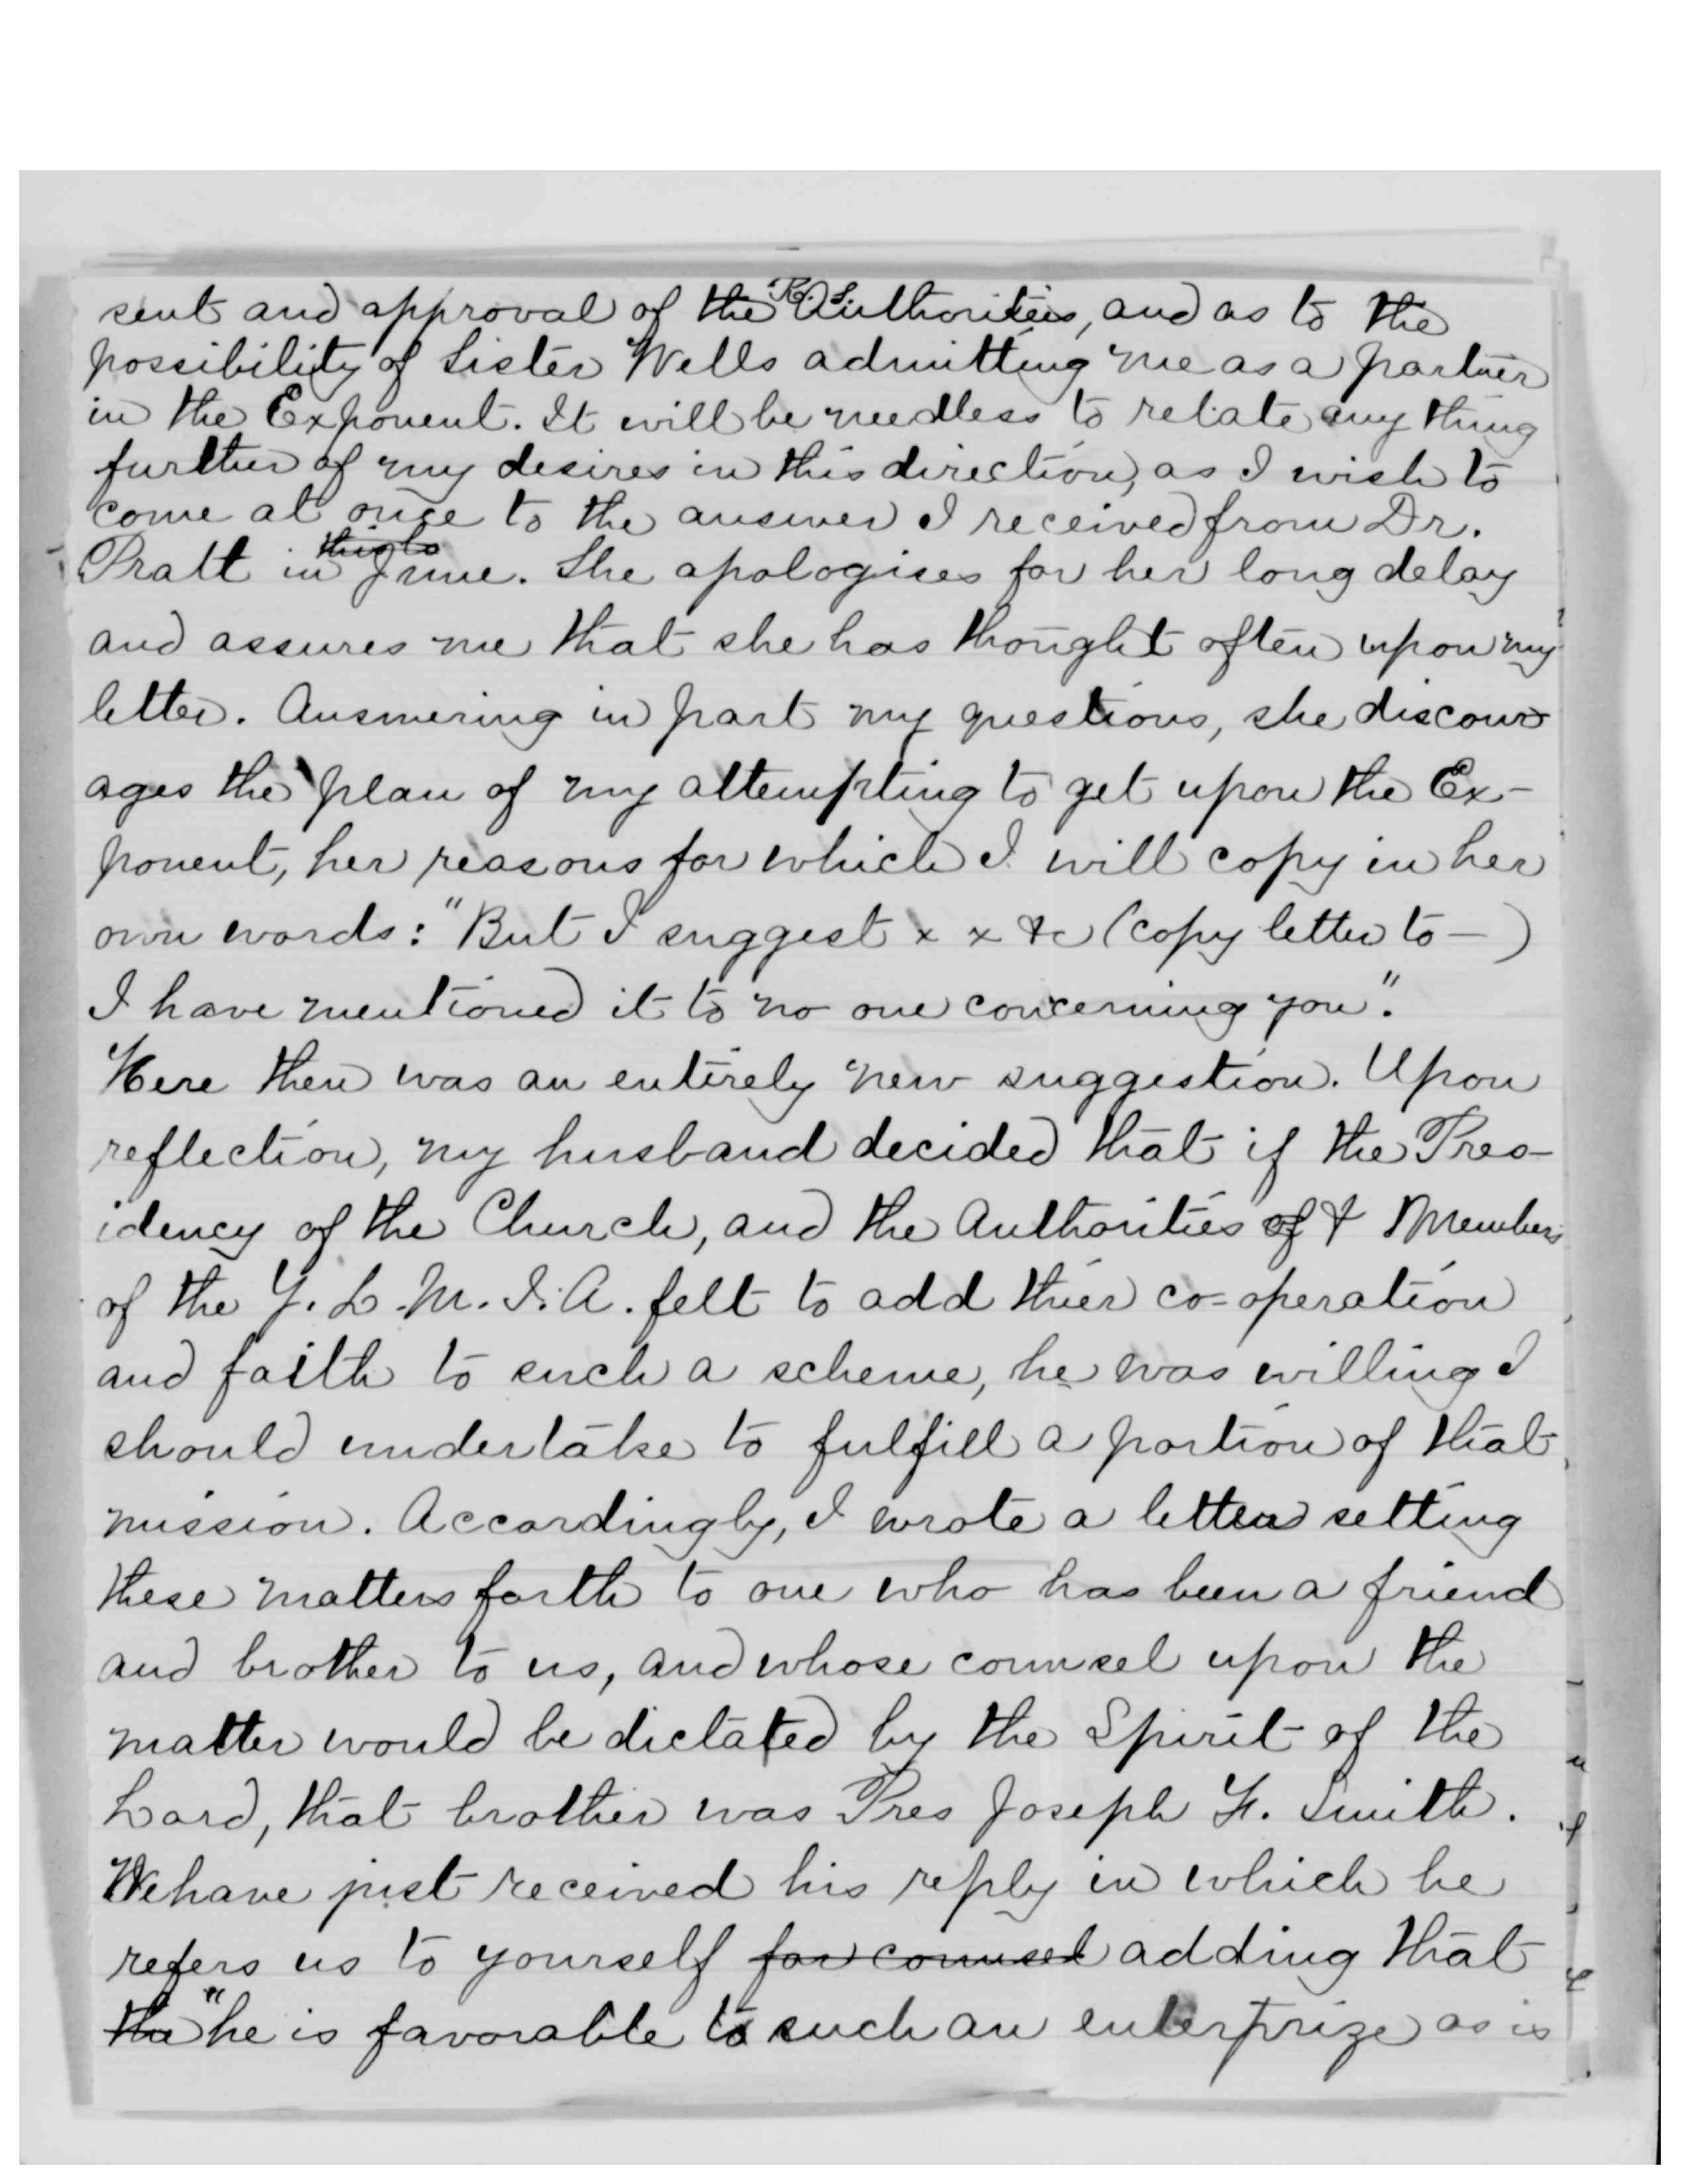 sent and approval of the R. S. Authorities, and as to the
possibility of Sister Wells admitting me as a partner
in the Exponent. It will be needless to relate any thing
further of my desires in this direction, as I wish to
come at once to the answer I received from Dr.
Pratt in June. She apologises for her long delay
and assures me that she has thought often upon my
letter. Answering in part my questions, she discour
ages the plan of my attempting to get upon the Ex-
ponent, her reasons for which I will copy in her
own words: "But I suggest x x &c (copy letter to — )
I have mentioned it to no one concerning you".
Here then was an entirely new suggestion. Upon
reflection, my husband decided that if the Pres-
idency of the Church, and the Authorities of & Members
of the Y. L. M. I. A. felt to add thier co-operation
and faith to such a scheme, he was willing I
should undertake to fulfill a portion of that
mission. Accordingly, I wrote a letter setting
these matters forth to one who has been a friend
and brother to us, and whose counsel upon the
matter would be dictated by the Spirit of the
Lord, that brother was Pres Joseph F. Smith.
We have just received his reply in which he
refers us to yourself for counsel adding that
tha "he is favorable to such an enterprize as is